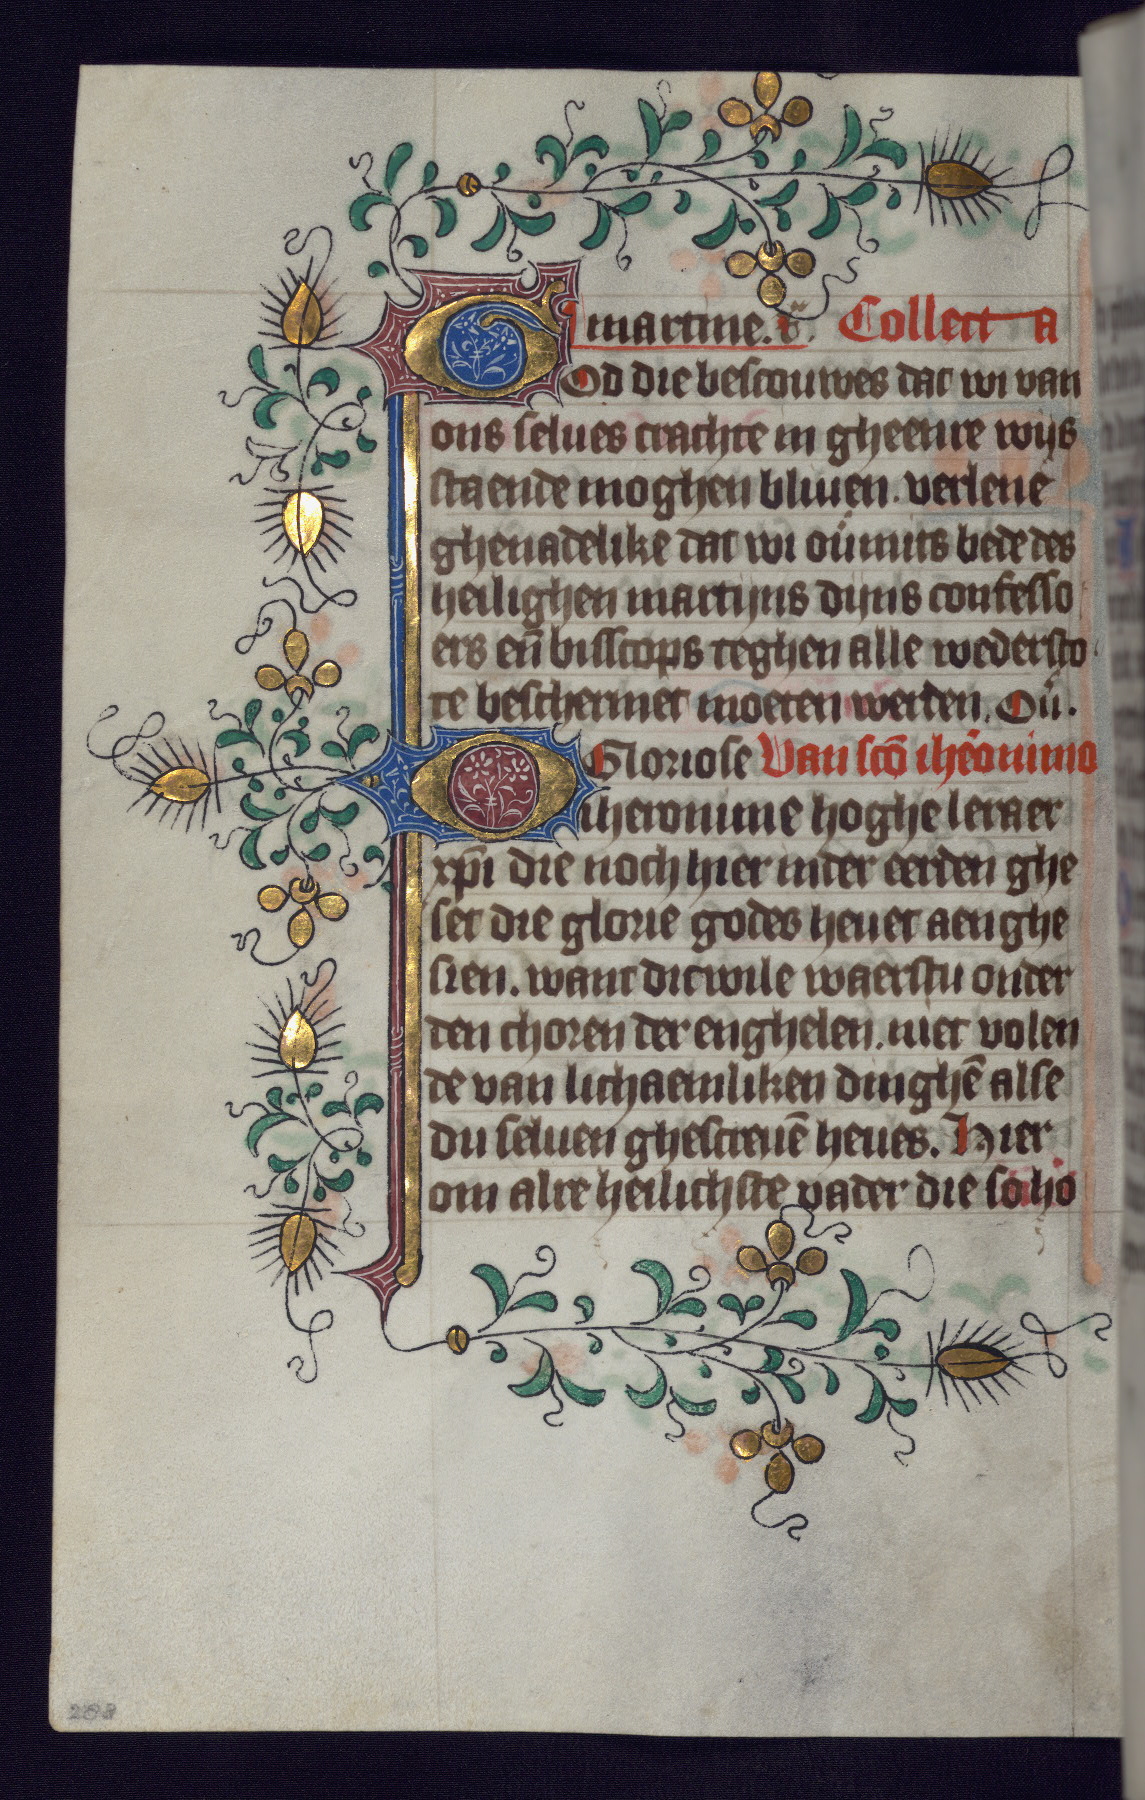 martine. v̄. Collect a
God die bescouwes dat wi van
ons selues crachte in gheenre wijs
staende moghen bliuen. verlene
ghenadelike dat wi ou̅mits bede des
heilighen martijns dijns confesso
ers en̄ bisscops teghen alle wedersto
te beschermet moeten werden. Ou̅.
O Gloriose Van sc̄o ihe̅onimo
iheronime hoghe leraer
xp̄i die noch hier inder eerden ghe
set die glorie godes heuet aenghe
sien. want dicwile waerstu onder
den choren der enghelen. niet volen
de van lichaemliken dinghē alse
du seluen ghescreuē heues. Hier
om alre heilichste vader die so ho
208